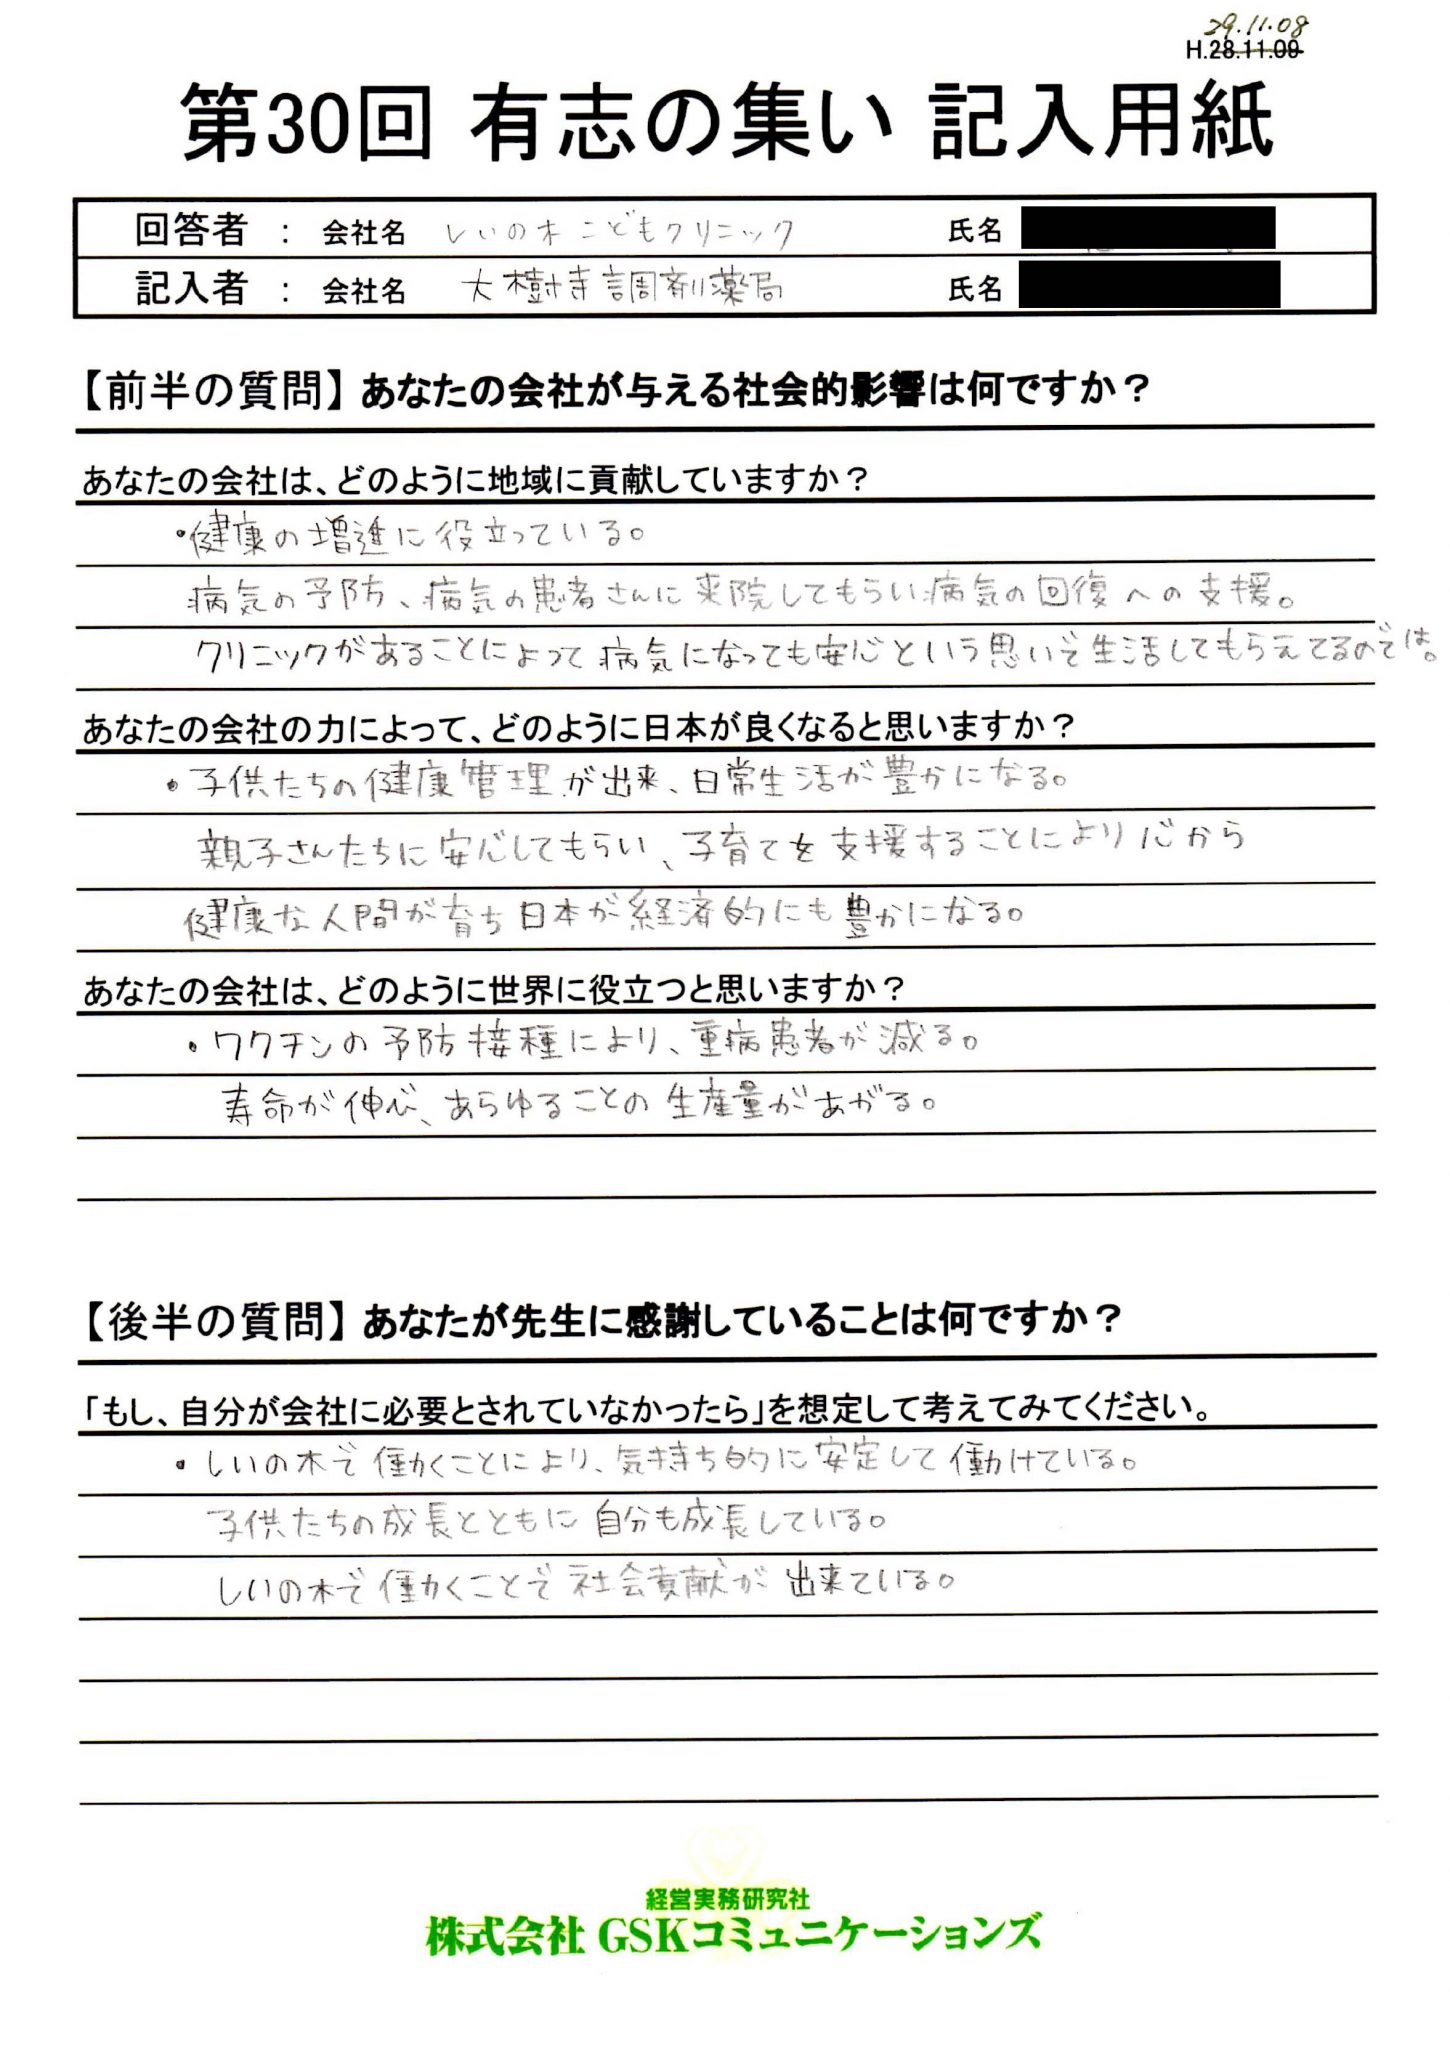 29.11.08
H.28.11.09
第30回 有志の集い 記入用紙
回答者 : 会社名 しいの木こどもクリニック 氏名
記入者 : 会社名 大樹寺調剤薬局 氏名
【前半の質問】あなたの会社が与える社会的影響は何ですか?
あなたの会社は、どのように地域に貢献していますか?
・健康の増進に役立っている。
病気の予防、病気の患者さんに来院してもらい病気の回復への支援。
クリニックがあることによって病気になっても安心という思いで生活してもらえてるのでは。
あなたの会社の力によって、どのように日本が良くなると思いますか?
・子供たちの健康管理が出来、日常生活が豊かになる。
親子さんたちに安心してもらい、子育てを支援することにより心から
健康な人間が育ち日本が経済的にも豊かになる。
あなたの会社は、どのように世界に役立つと思いますか?
・ワクチンの予防接種により、重病患者が減る。
寿命が伸び、あらゆることの生産量があがる。
【後半の質問】あなたが先生に感謝していることは何ですか?
「もし、自分が会社に必要とされていなかったら」を想定して考えてみてください。
・しいの木で働くことにより、気持ち的に安定して働けている。
子供たちの成長とともに自分も成長している。
しいの木で働くことで社会貢献が出来ている。
経営実務研究社
株式会社 GSKコミュニケーションズ